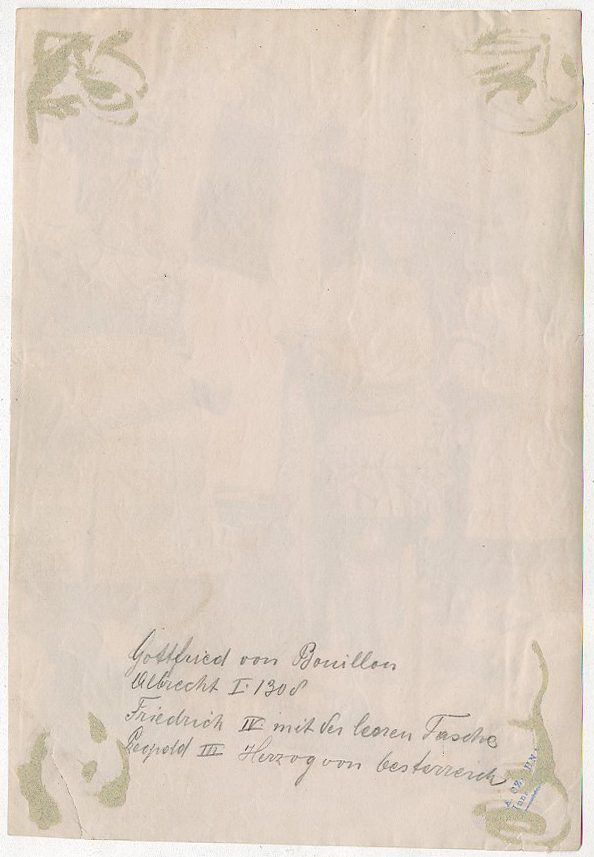 Gottfried von Bouillon
Albrecht I. 1308
Friedrich IV mit der leeren Tasche
Leopold III Herzog von Oesterreich